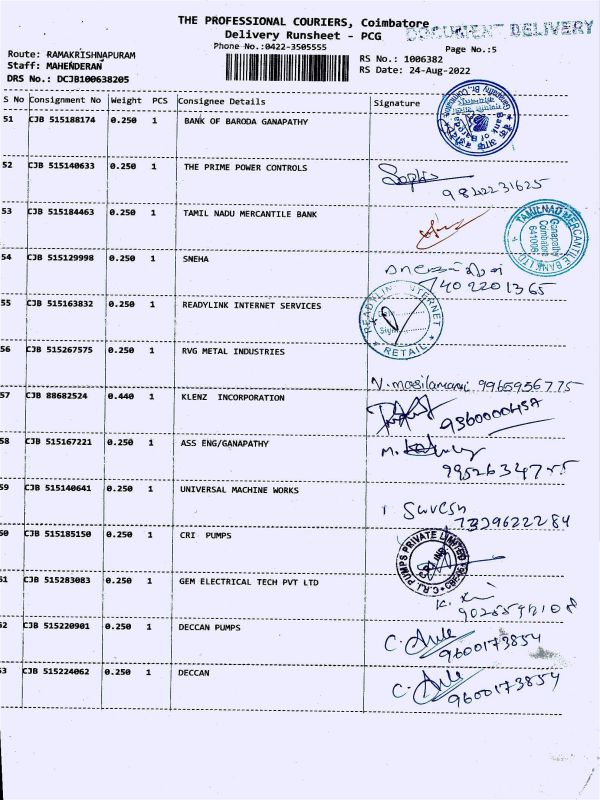 THE PROFESSIONAL COURIERS, Coimbatore
DOCUMENT DELIVERY
Delivery Runsheet - PCG
Phone No.:0422-3505555
Page No.:5
Route: RAMAKRISHNAPURAM
RS No.: 1006382
Staff: MAHENDERAN
RS Date: 24-Aug-2022
DRS No.: DCJB100638205
S No Consignment No Weight PCS Consignee Details Signature
51 CJB 515188174 0.250 1 BANK OF BARODA GANAPATHY
Bank of Baroda
52 CJB 515140633 0.250 1 THE PRIME POWER CONTROLS
53 CJB 515184463 0.250 1 TAMIL NADU MERCANTILE BANK
TAMILNAD MERCANTILE BANK LTD
Ganapathy
Coimbatore
641006
54 CJB 515129998 0.250 1 SNEHA
7402201365
55 CJB 515163832 0.250 1 READYLINK INTERNET SERVICES
READYLINK INTERNET
* RETAIL *
56 CJB 515267575 0.250 1 RVG METAL INDUSTRIES
N. masilamani 9965956775
57 CJB 88682524 0.440 1 KLENZ INCORPORATION
58 CJB 515167221 0.250 1 ASS ENG/GANAPATHY
59 CJB 515140641 0.250 1 UNIVERSAL MACHINE WORKS
Suresh
60 CJB 515185150 0.250 1 CRI PUMPS
C.R.I. PUMPS PRIVATE LIMITED
51 CJB 515283083 0.250 1 GEM ELECTRICAL TECH PVT LTD
52 CJB 515220901 0.250 1 DECCAN PUMPS
9600173854
53 CJB 515224062 0.250 1 DECCAN
9600173854